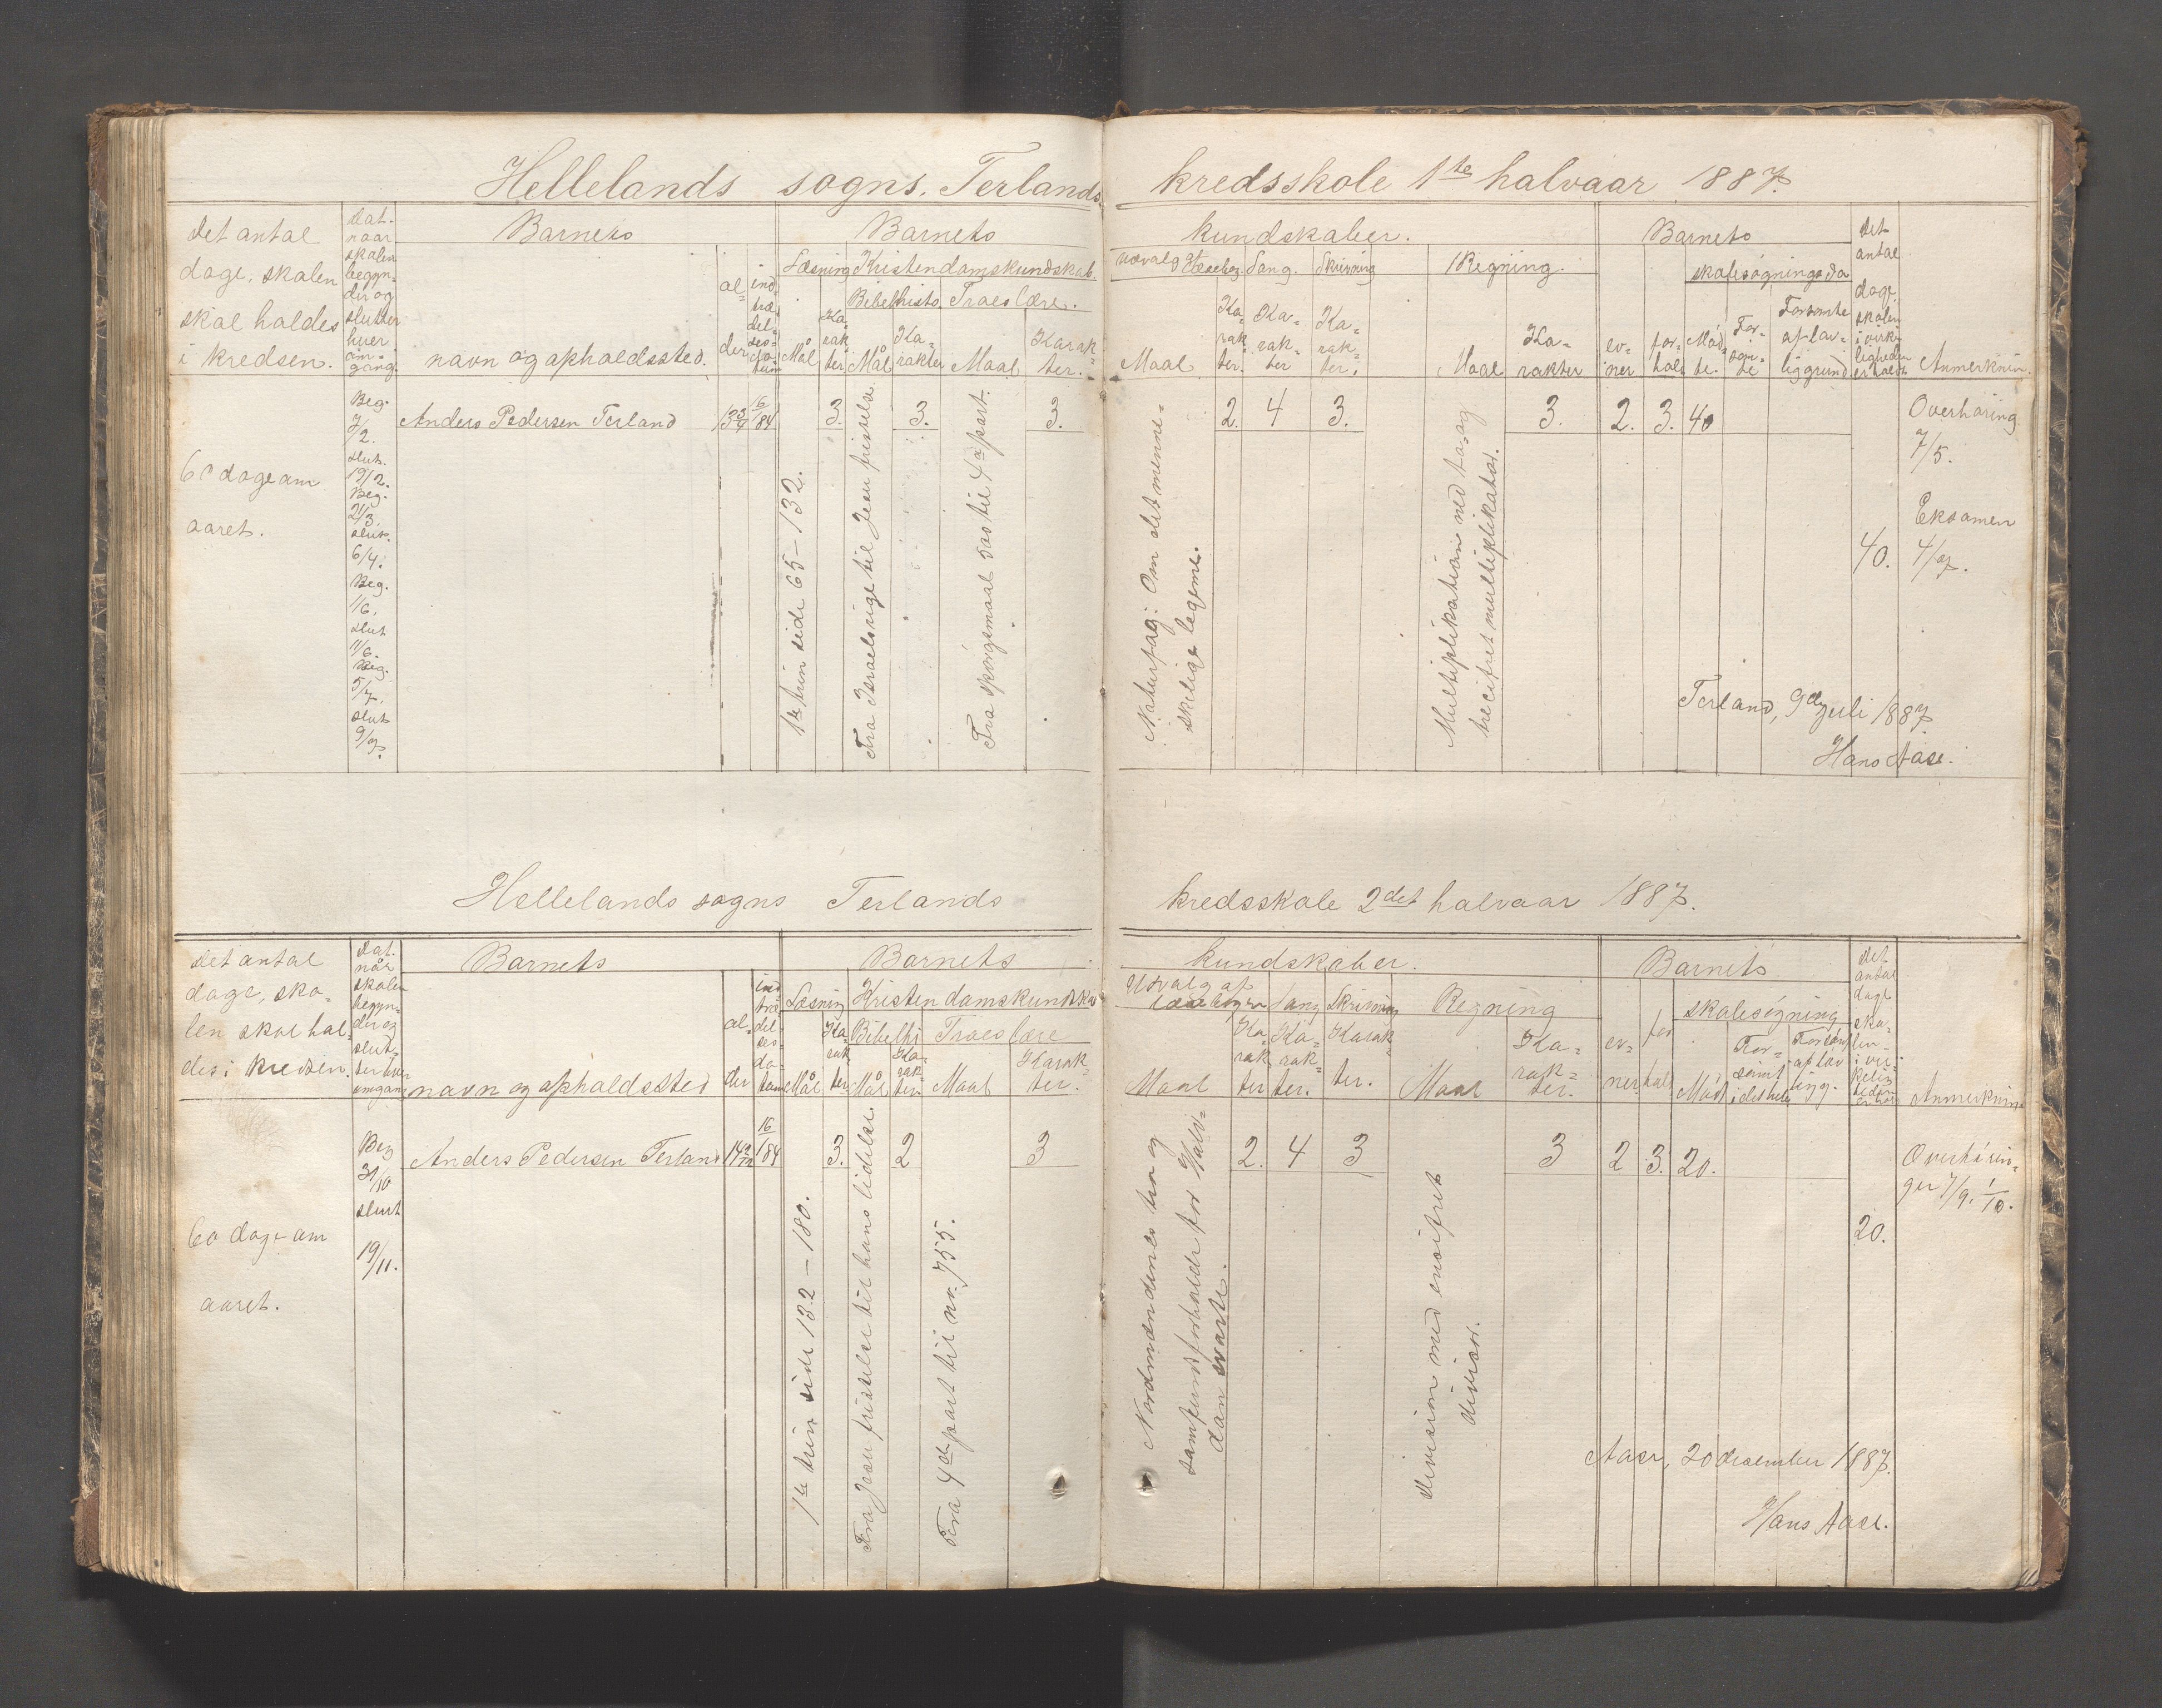 Hellelands sogns. Terlands kredsskole 1ste halvaar 1887.
det antal dage, skolen skal holdes i kredsen.
Dat. naar skolen begynder og slutter hver omgang.
Barnets
navn og opholdssted.
alder
indtrædelsesdatum
Barnets kundskaber.
Læsning
Mål
Karakter
Kristendomskundskab.
Bibelhisto.
Mål
Karakter
Troeslære.
Maal
Karakter.
Udvalg af Læsebog.
Maal
Karakter.
Sang.
Karakter
Skrivning
Karakter.
Regning.
Maal
Karakter
Barnets
evner
forhold
skolesøgningsda
Mødte.
Forsømte
Forsømte af lovlig grund
det antal dage skolen i virkeligheden er holdt
Anmerknin.
60 dage om
aaret.
Beg.
7/2.
slut.
19/2.
Beg.
21/3.
slut.
6/4.
Beg.
1/6.
slut
11/6.
Beg.
5/7.
slut
9/7.
Anders Pedersen Terland
16/84
3.
3.
3.
2.
4
3.
3.
2.
3.
40
1ste trin side 65 – 132.
Fra Israels rige til Jesu fristelse
Fra spørgsmaal 500 til 4de part.
Naturfag: Om det menne-
skelige legeme.
Multiplikation med to og
trecifret multiplikator.
40.
Overhøring
7/5.
Eksamen
4/7.
Terland, 9de juli 1887
Hans Aase.
Hellelands sogns Terlands kredsskole 2det halvaar 1887.
det antal dage, skolen skal holdes i kredsen.
Dat. når skolen begynder og slutter hver omgang
Barnets
navn og opholdssted
alder
indtrædelsesdatum
Barnets kundskaber.
Læsning
Mål
Karakter
Kristendomskundskab
Bibelhi
Mål
Karakter
Troeslære
Maal
Karakter.
Udvalg af læsebogen
Maal
Karakter
Sang
Karakter.
Skrivning
Karakter.
Regning
Maal
Karakter.
Barnets
evner
forhold
skolesøgning
Mødt
Forsømt i det hele
Forsømt af lovlig g.
det antal dage skolen i virkeligheden er holdt
Anmerknin
60 dage om
aaret.
Beg
31/10
slut
19/11.
Anders Pedersen Terland
16/84
3.
2
3
2.
4
3
3
2
3.
20.
1ste trin side 132 – 180.
Fra Jesu fristelse til hans lidelse.
Fra 4de part til nr. 755.
Nordmændenes tro og
samfundsforholde før Halv-
dan svarte.
Division med encifret
divisor.
20.
Overhørin-
ger 7/9. 1/10.
Aase, 20 desember 1887.
Hans Aase.